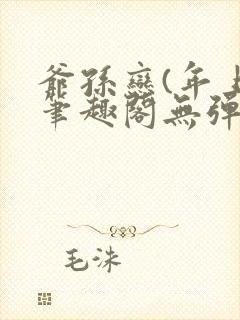 爺孫戀(年上
筆趣閣無彈
毛沬